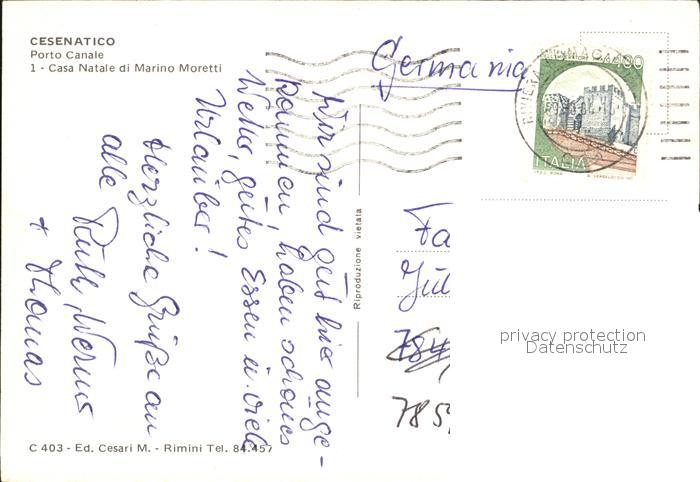 CESENATICO
Porto Canale
1 - Casa Natale di Marino Moretti
Germania
400
ITALIA
Wir sind gut hier ange-
kommen, haben schönes
Wetter, gutes Essen u. viele
Urlauber!
Herzliche Grüße an
alle Ruth, Werner
+ Thomas
Riproduzione vietata
Fa
Jül
784
785
privacy protection
Datenschutz
C 403 - Ed. Cesari M. - Rimini Tel. 84.457